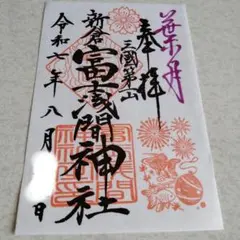 葉月
奉拝
三國第一山
新倉富士浅間神社
令和七年八月 日